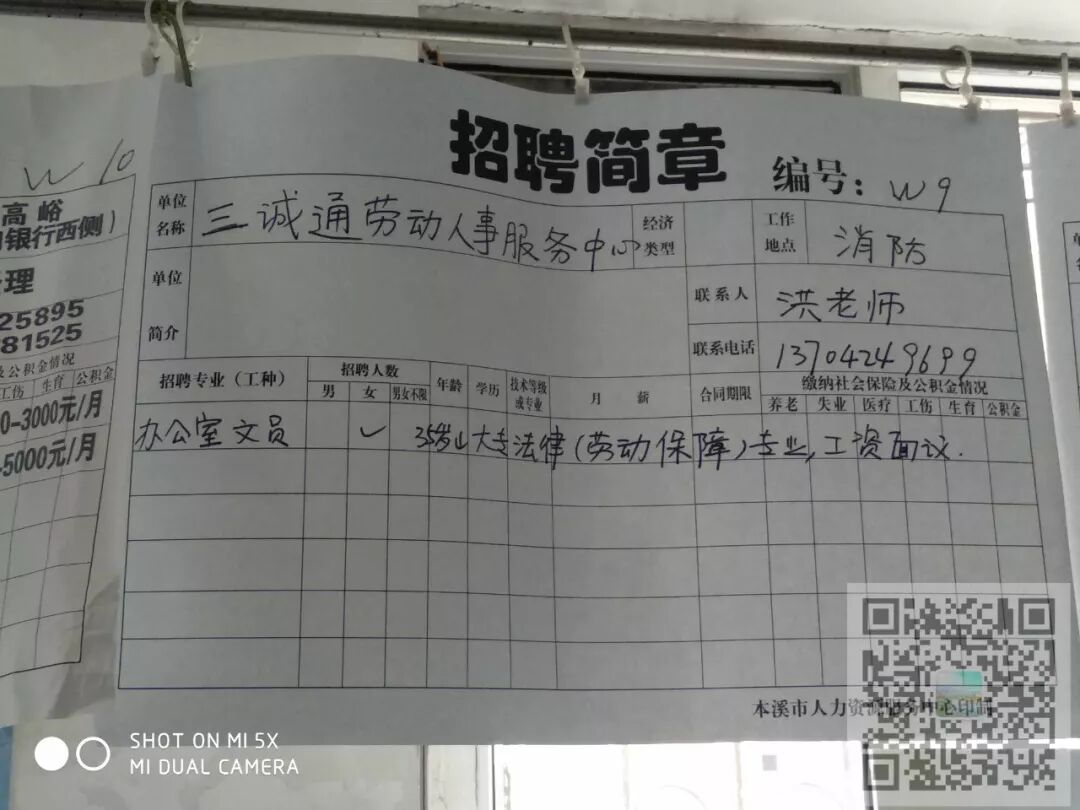 W10
高峪
银行西侧）
理
25895
81525
及公积金情况
工伤 生育 公积金
0-3000元/月
-5000元/月
招聘简章
编号：W9
单位名称 三诚通劳动人事服务中心 经济类型 工作地点 消防
单位简介
联系人 洪老师
联系电话 13704249699
招聘专业（工种） 招聘人数 年龄 学历 技术等级或专业 月 薪 合同期限 缴纳社会保险及公积金情况
男 女 男女不限 养老 失业 医疗 工伤 生育 公积金
办公室文员 ✓ 35岁以 大专 法律（劳动保障）专业，工资面议.
本溪市人力资源服务中心印制
SHOT ON MI 5X
MI DUAL CAMERA